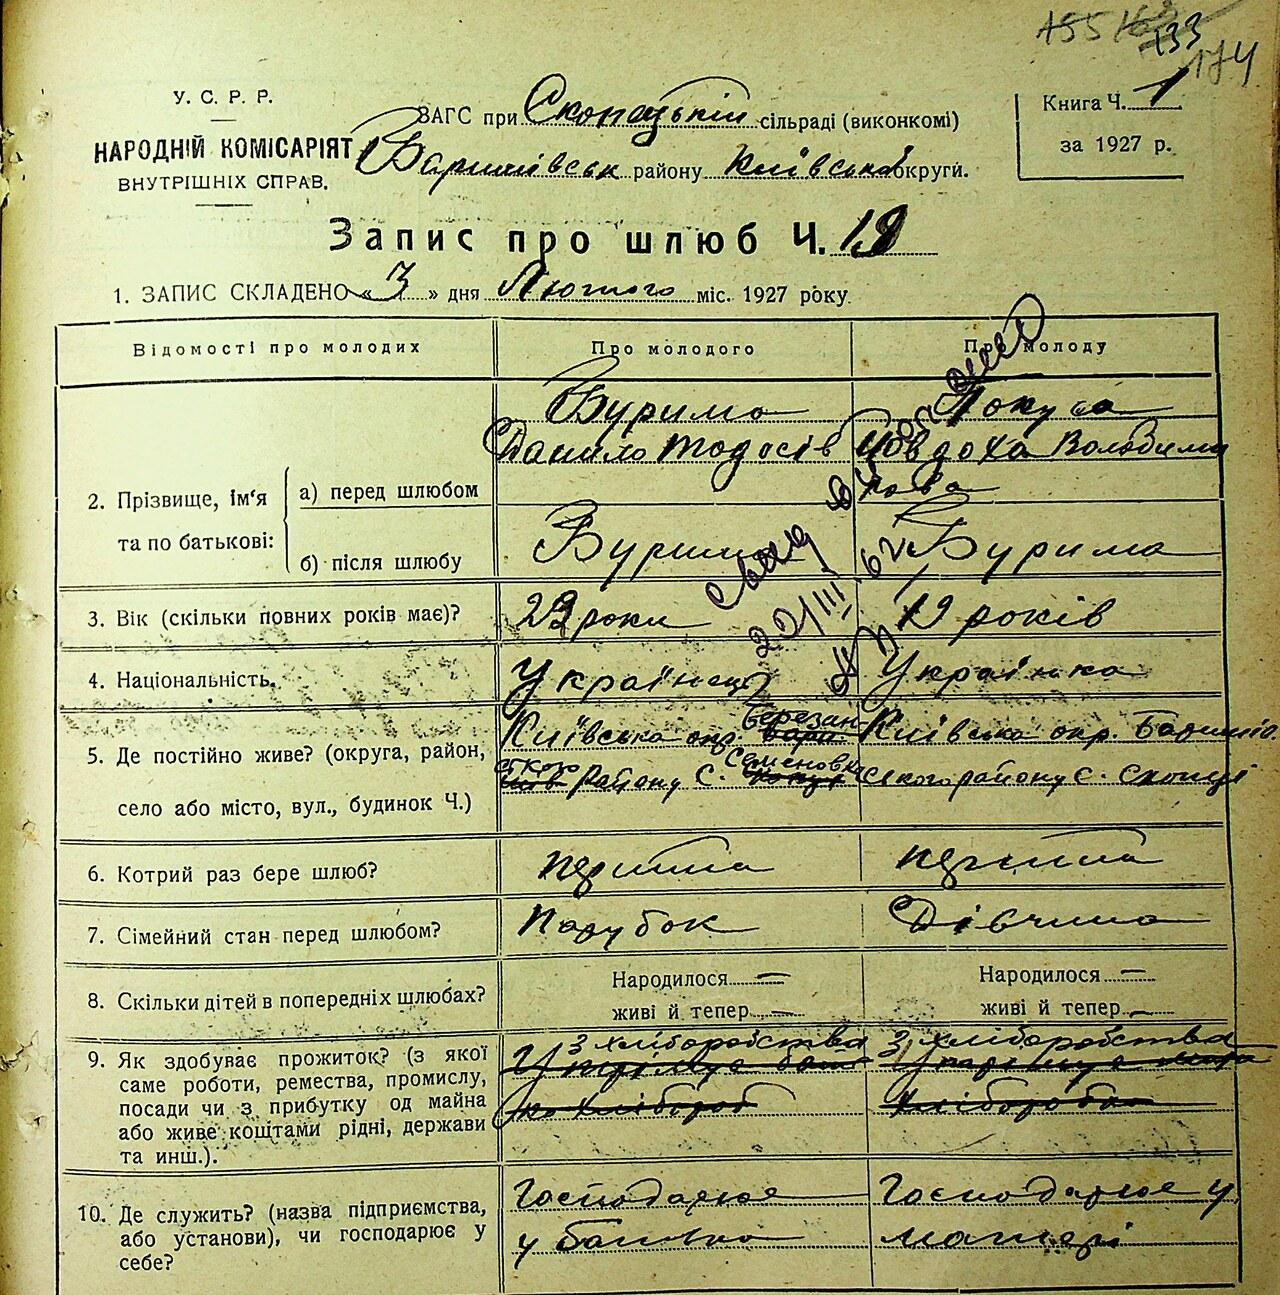 133
174
У. С. Р. Р.
НАРОДНІЙ КОМІСАРІЯТ
ВНУТРІШНІХ СПРАВ.
ЗАГС при Скопецькій сільраді (виконкомі)
Баришівськ району Київської округи.
Книга Ч. 1
за 1927 р.
Запис про шлюб Ч. 19
1. ЗАПИС СКЛАДЕНО «3» дня Лютого міс. 1927 року
Відомості про молодих
Про молодого
Про молоду
2. Прізвище, ім'я
та по батькові:
а) перед шлюбом
Бурима
Данило Тодосів
Явдоха Володими
рова
б) після шлюбу
Бурима
Бурима
3. Вік (скільки повних років має)?
23 роки
19 років
4. Національність.
Українець
Українка
22/III 62
5. Де постійно живе? (округа, район,
село або місто, вул., будинок Ч.)
Київська окр. Березан-
ського Району С. Семеновка
Київська окр. Баришів
ського району С. Скопці
6. Котрий раз бере шлюб?
перший
перший
7. Сімейний стан перед шлюбом?
Парубок
Дівчина
8. Скільки дітей в попередніх шлюбах?
Народилося —
живі й тепер —
Народилося —
живі й тепер —
9. Як здобуває прожиток? (з якої
саме роботи, ремества, промислу,
посади чи з прибутку од майна
або живе коштами рідні, держави
та инш.).
З хліборобства
З хліборобства
10. Де служить? (назва підприємства,
або установи), чи господарює у
себе?
Господарює
у батька
Господарює у
матері